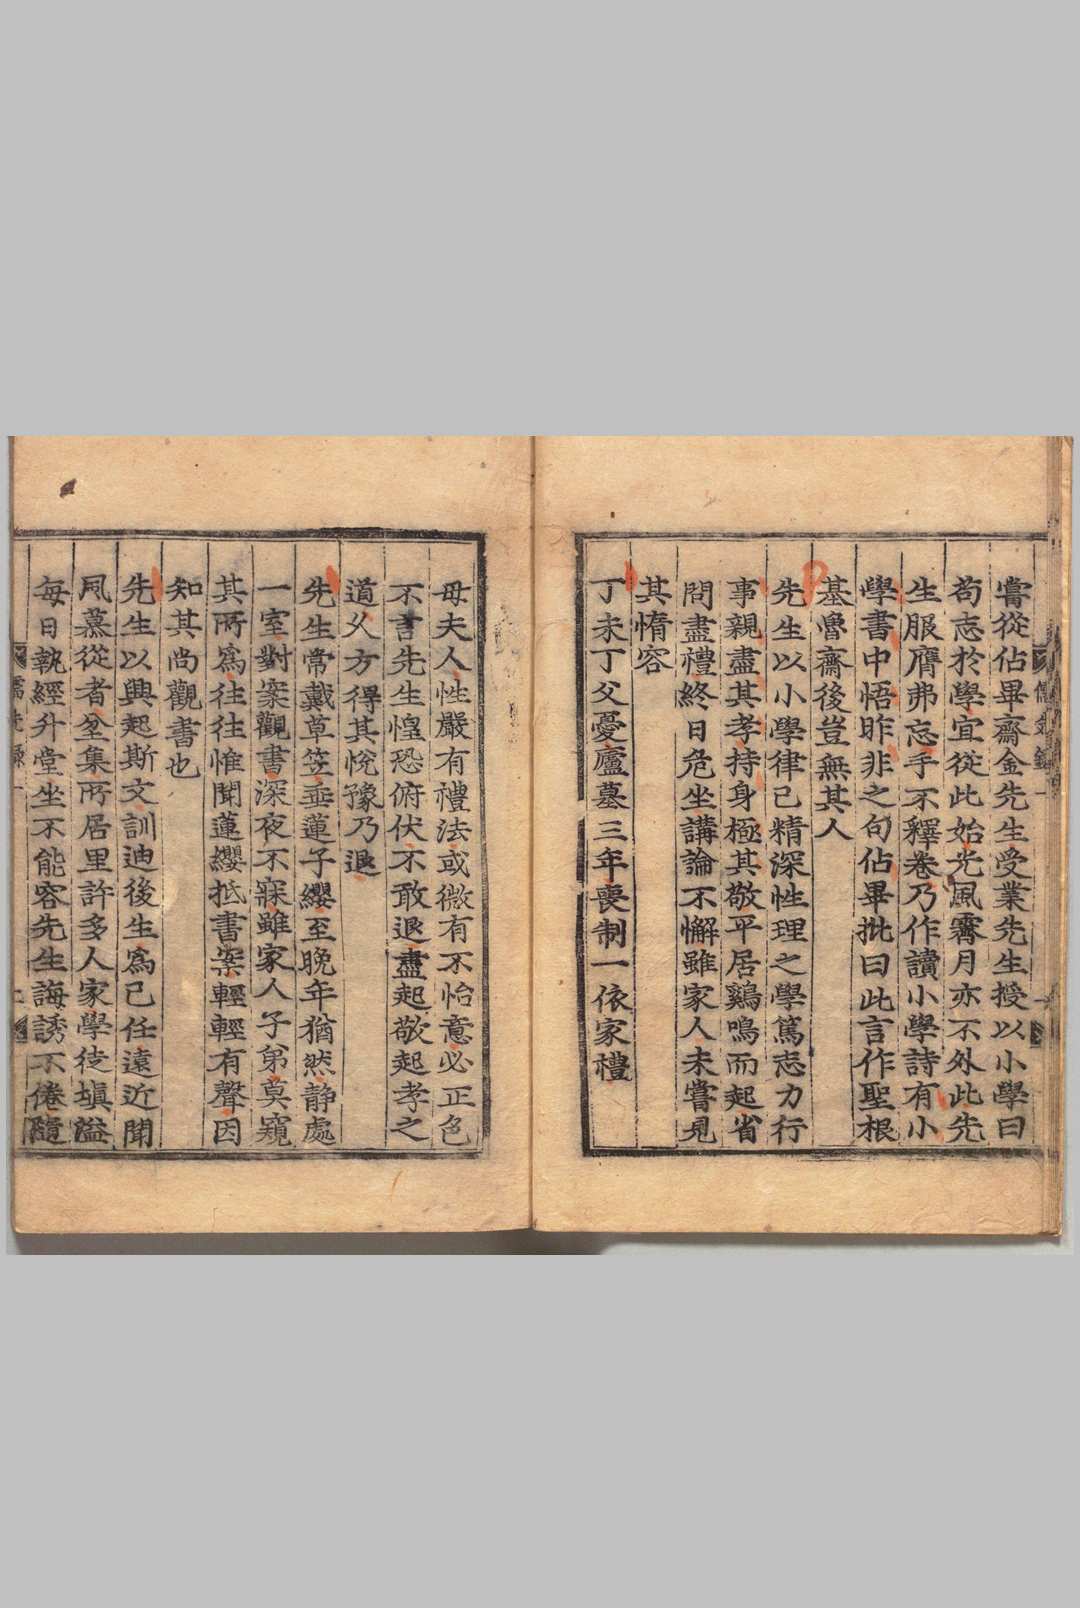 嘗從佔畢齋金先生受業先生授以小學曰
苟志於學宜從此始光風霽月亦不外此先
生服膺弗忘手不釋卷乃作讀小學詩有小
學書中悟昨非之句佔畢批曰此言作聖根
基魯齋後豈無其人
先生以小學律己精深性理之學篤志力行
事親盡其孝持身極其敬平居鷄鳴而起省
問盡禮終日危坐講論不懈雖家人未嘗見
其惰容
丁未丁父憂廬墓三年喪制一依家禮
母夫人性嚴有禮法或微有不怡意必正色
不言先生惶恐俯伏不敢退盡起敬起孝之
道乆方得其悅豫乃退
先生常戴草笠垂蓮子纓至晚年猶然静處
一室對案觀書深夜不寐雖家人子弟莫窺
其所爲往往惟聞蓮纓抵書案輕輕有聲因
知其尚觀書也
先生以興起斯文訓迪後生爲己任遠近聞
風慕從者坌集所居里許多人家學徒塡溢
每日執經升堂坐不能容先生誨誘不倦隨
儒先錄